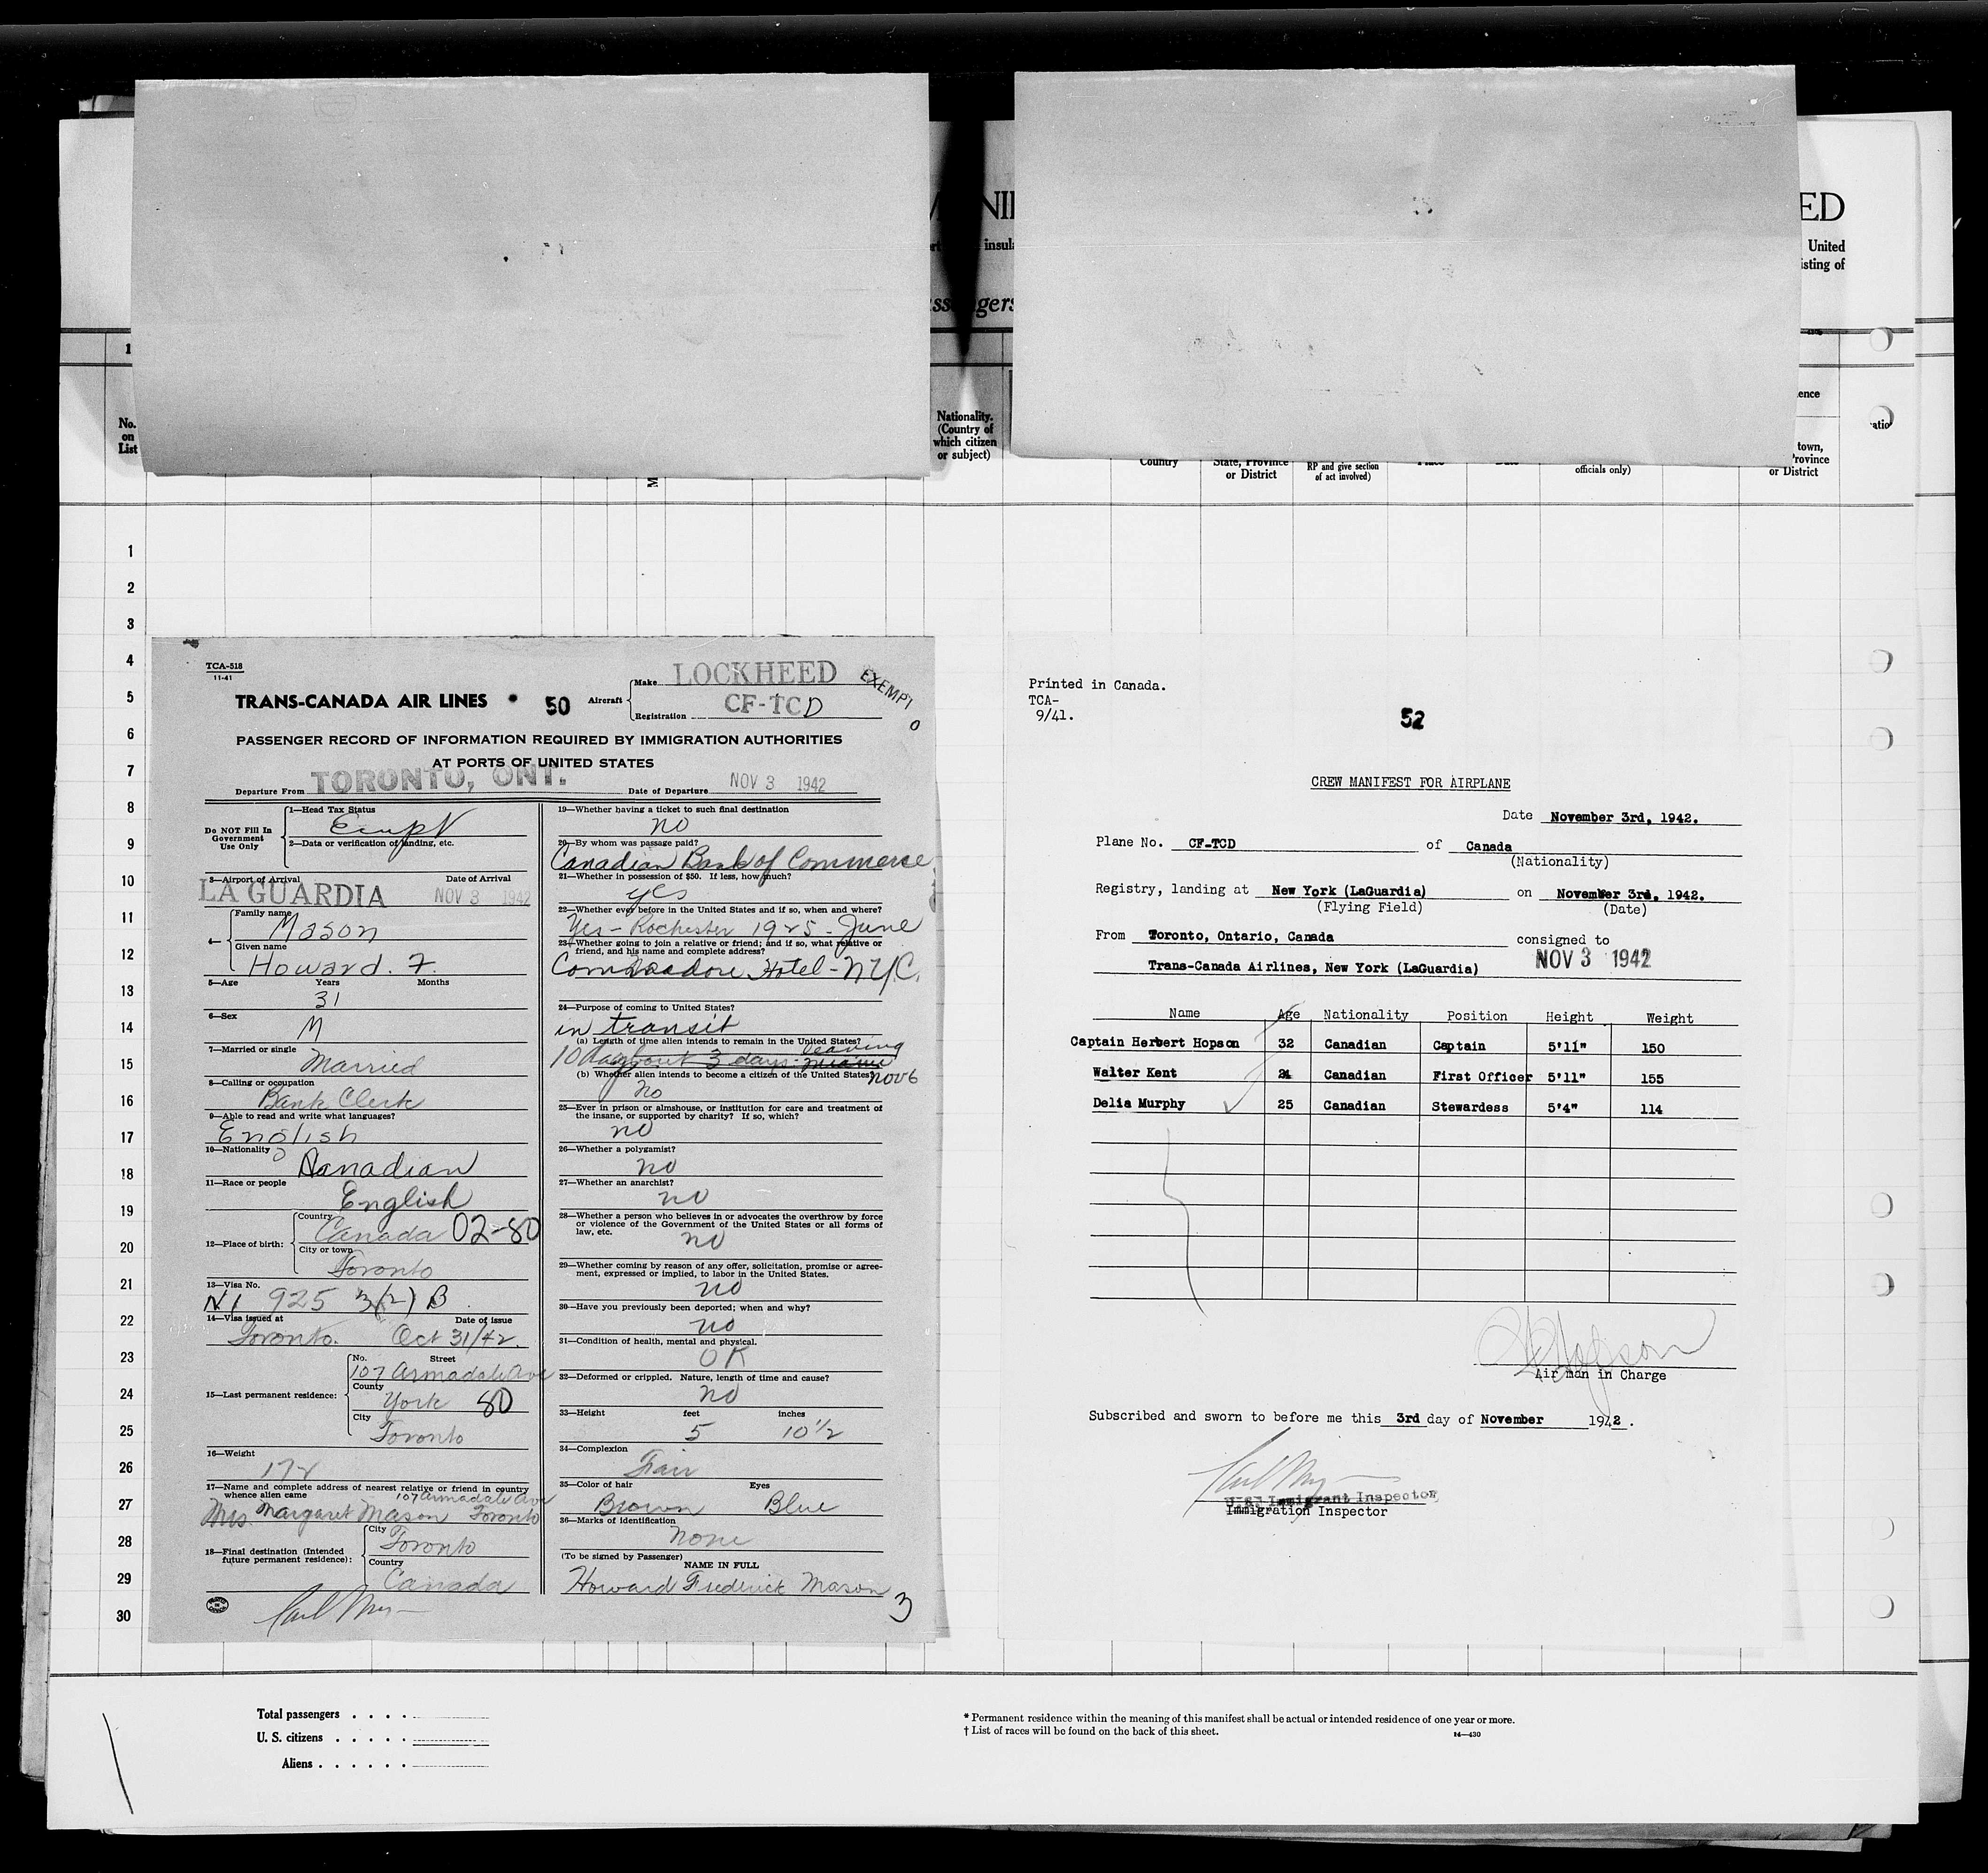 ED
United
isting of
1
No.
on
List
Nationality.
(Country of
which citizen
or subject)
Country
State, Province
or District
RP and give section
of act involved)
officials only)
town,
Province
or District
1
2
3
4
5
6
7
8
9
10
11
12
13
14
15
16
17
18
19
20
21
22
23
24
25
26
27
28
29
30
TCA-518
11-41
TRANS-CANADA AIR LINES • 50 Aircraft
Make LOCKHEED
Registration CF-TCD
EXEMPT
0
PASSENGER RECORD OF INFORMATION REQUIRED BY IMMIGRATION AUTHORITIES
AT PORTS OF UNITED STATES
Departure From TORONTO, ONT. Date of Departure NOV 3 1942
Do NOT Fill In
Government
Use Only
1—Head Tax Status
2—Data or verification of landing, etc.
3—Airport of Arrival Date of Arrival
LA GUARDIA NOV 3 1942
4— Family name
Mason
Given name
Howard. F.
5—Age Years Months
31
6—Sex
M
7—Married or single
Married
8—Calling or occupation
Bank Clerk
9—Able to read and write what languages?
English
10—Nationality
Canadian
11—Race or people
English
12—Place of birth:
Country
Canada 02-80
City or town
Toronto
13—Visa No.
NI 925 3(2) B
14—Visa issued at Date of issue
Toronto. Oct 31/42.
15—Last permanent residence:
No. Street
107 Armadale Ave
County
York 80
City
Toronto
16—Weight
172
17—Name and complete address of nearest relative or friend in country
whence alien came 107 Armadale Ave
Mrs. Margaret Mason Toronto
18—Final destination (Intended
future permanent residence):
City
Toronto
Country
Canada
19—Whether having a ticket to such final destination
no
20—By whom was passage paid?
Canadian Bank of Commerce
21—Whether in possession of $50. If less, how much?
yes
22—Whether ever before in the United States and if so, when and where?
Yes - Rochester 1925 - June
23—Whether going to join a relative or friend; and if so, what relative or
friend, and his name and complete address?
Commodore Hotel - N.Y.C.
24—Purpose of coming to United States?
in transit
(a) Length of time alien intends to remain in the United States?
10 days about 3 days - leaving Miami
(b) Whether alien intends to become a citizen of the United States? Nov 6
no
25—Ever in prison or almshouse, or institution for care and treatment of
the insane, or supported by charity? If so, which?
no
26—Whether a polygamist?
no
27—Whether an anarchist?
no
28—Whether a person who believes in or advocates the overthrow by force
or violence of the Government of the United States or all forms of
law, etc.
no
29—Whether coming by reason of any offer, solicitation, promise or agree-
ment, expressed or implied, to labor in the United States.
no
30—Have you previously been deported; when and why?
no
31—Condition of health, mental and physical.
OK
32—Deformed or crippled. Nature, length of time and cause?
no
33—Height feet inches
5 10 1/2
34—Complexion
Fair
35—Color of hair Eyes
Brown Blue
36—Marks of identification
none
(To be signed by Passenger)
NAME IN FULL
Howard Frederick Mason
3
Printed in Canada.
TCA-
9/41.
52
CREW MANIFEST FOR AIRPLANE
Date November 3rd, 1942.
Plane No. CF-TCD of Canada
(Nationality)
Registry, landing at New York (LaGuardia) on November 3rd, 1942.
(Flying Field) (Date)
From Toronto, Ontario, Canada consigned to
Trans-Canada Airlines, New York (LaGuardia) NOV 3 1942
Name Age Nationality Position Height Weight
Captain Herbert Hopson 32 Canadian Captain 5'11" 150
Walter Kent 21 Canadian First Officer 5'11" 155
Delia Murphy 25 Canadian Stewardess 5'4" 114
Air man in Charge
Subscribed and sworn to before me this 3rd day of November 1942.
U.S. Immigrant Inspector
Immigration Inspector
Total passengers
U. S. citizens
Aliens
* Permanent residence within the meaning of this manifest shall be actual or intended residence of one year or more.
† List of races will be found on the back of this sheet.
14—430